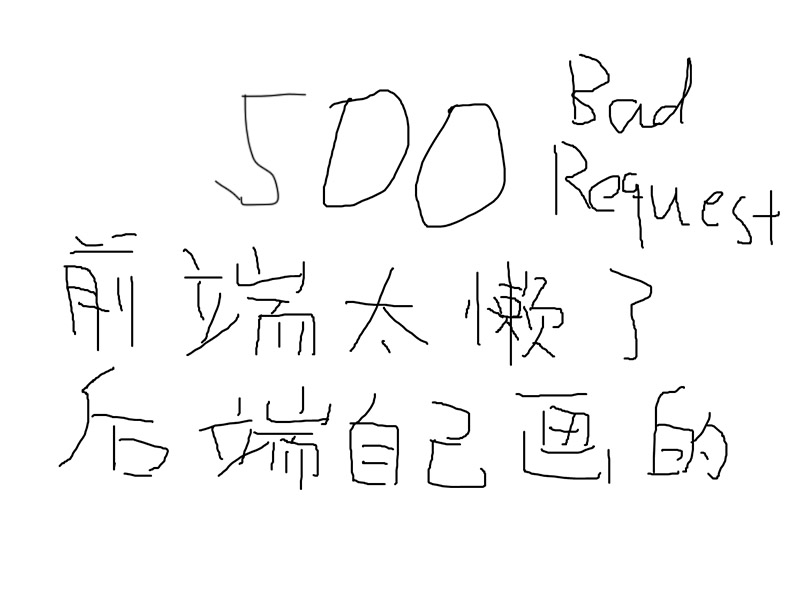 500 Bad
Request
前端太懒了
后端自己画的